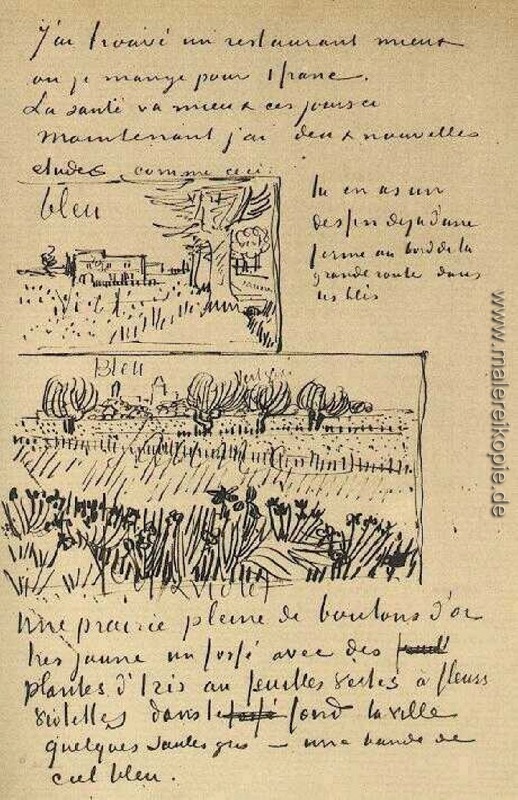 J'ai trouvé un restaurant mieux
ou je mange pour 1 franc.
La santé va mieux ces jours ci
Maintenant j'ai deux nouvelles
etudes comme ceci:
bleu
tu en as un
dessin deja d'une
ferme au bord de la
grande route dans
les blés
Bleu
Violet
Une prairie pleine de boutons d'or
tres jaune un fossé avec des
plantes d'Iris au feuilles vertes à fleurs
violettes dans le fossé fond la ville
quelques saules gris – une bande de
ciel bleu.
www.malereikopie.de